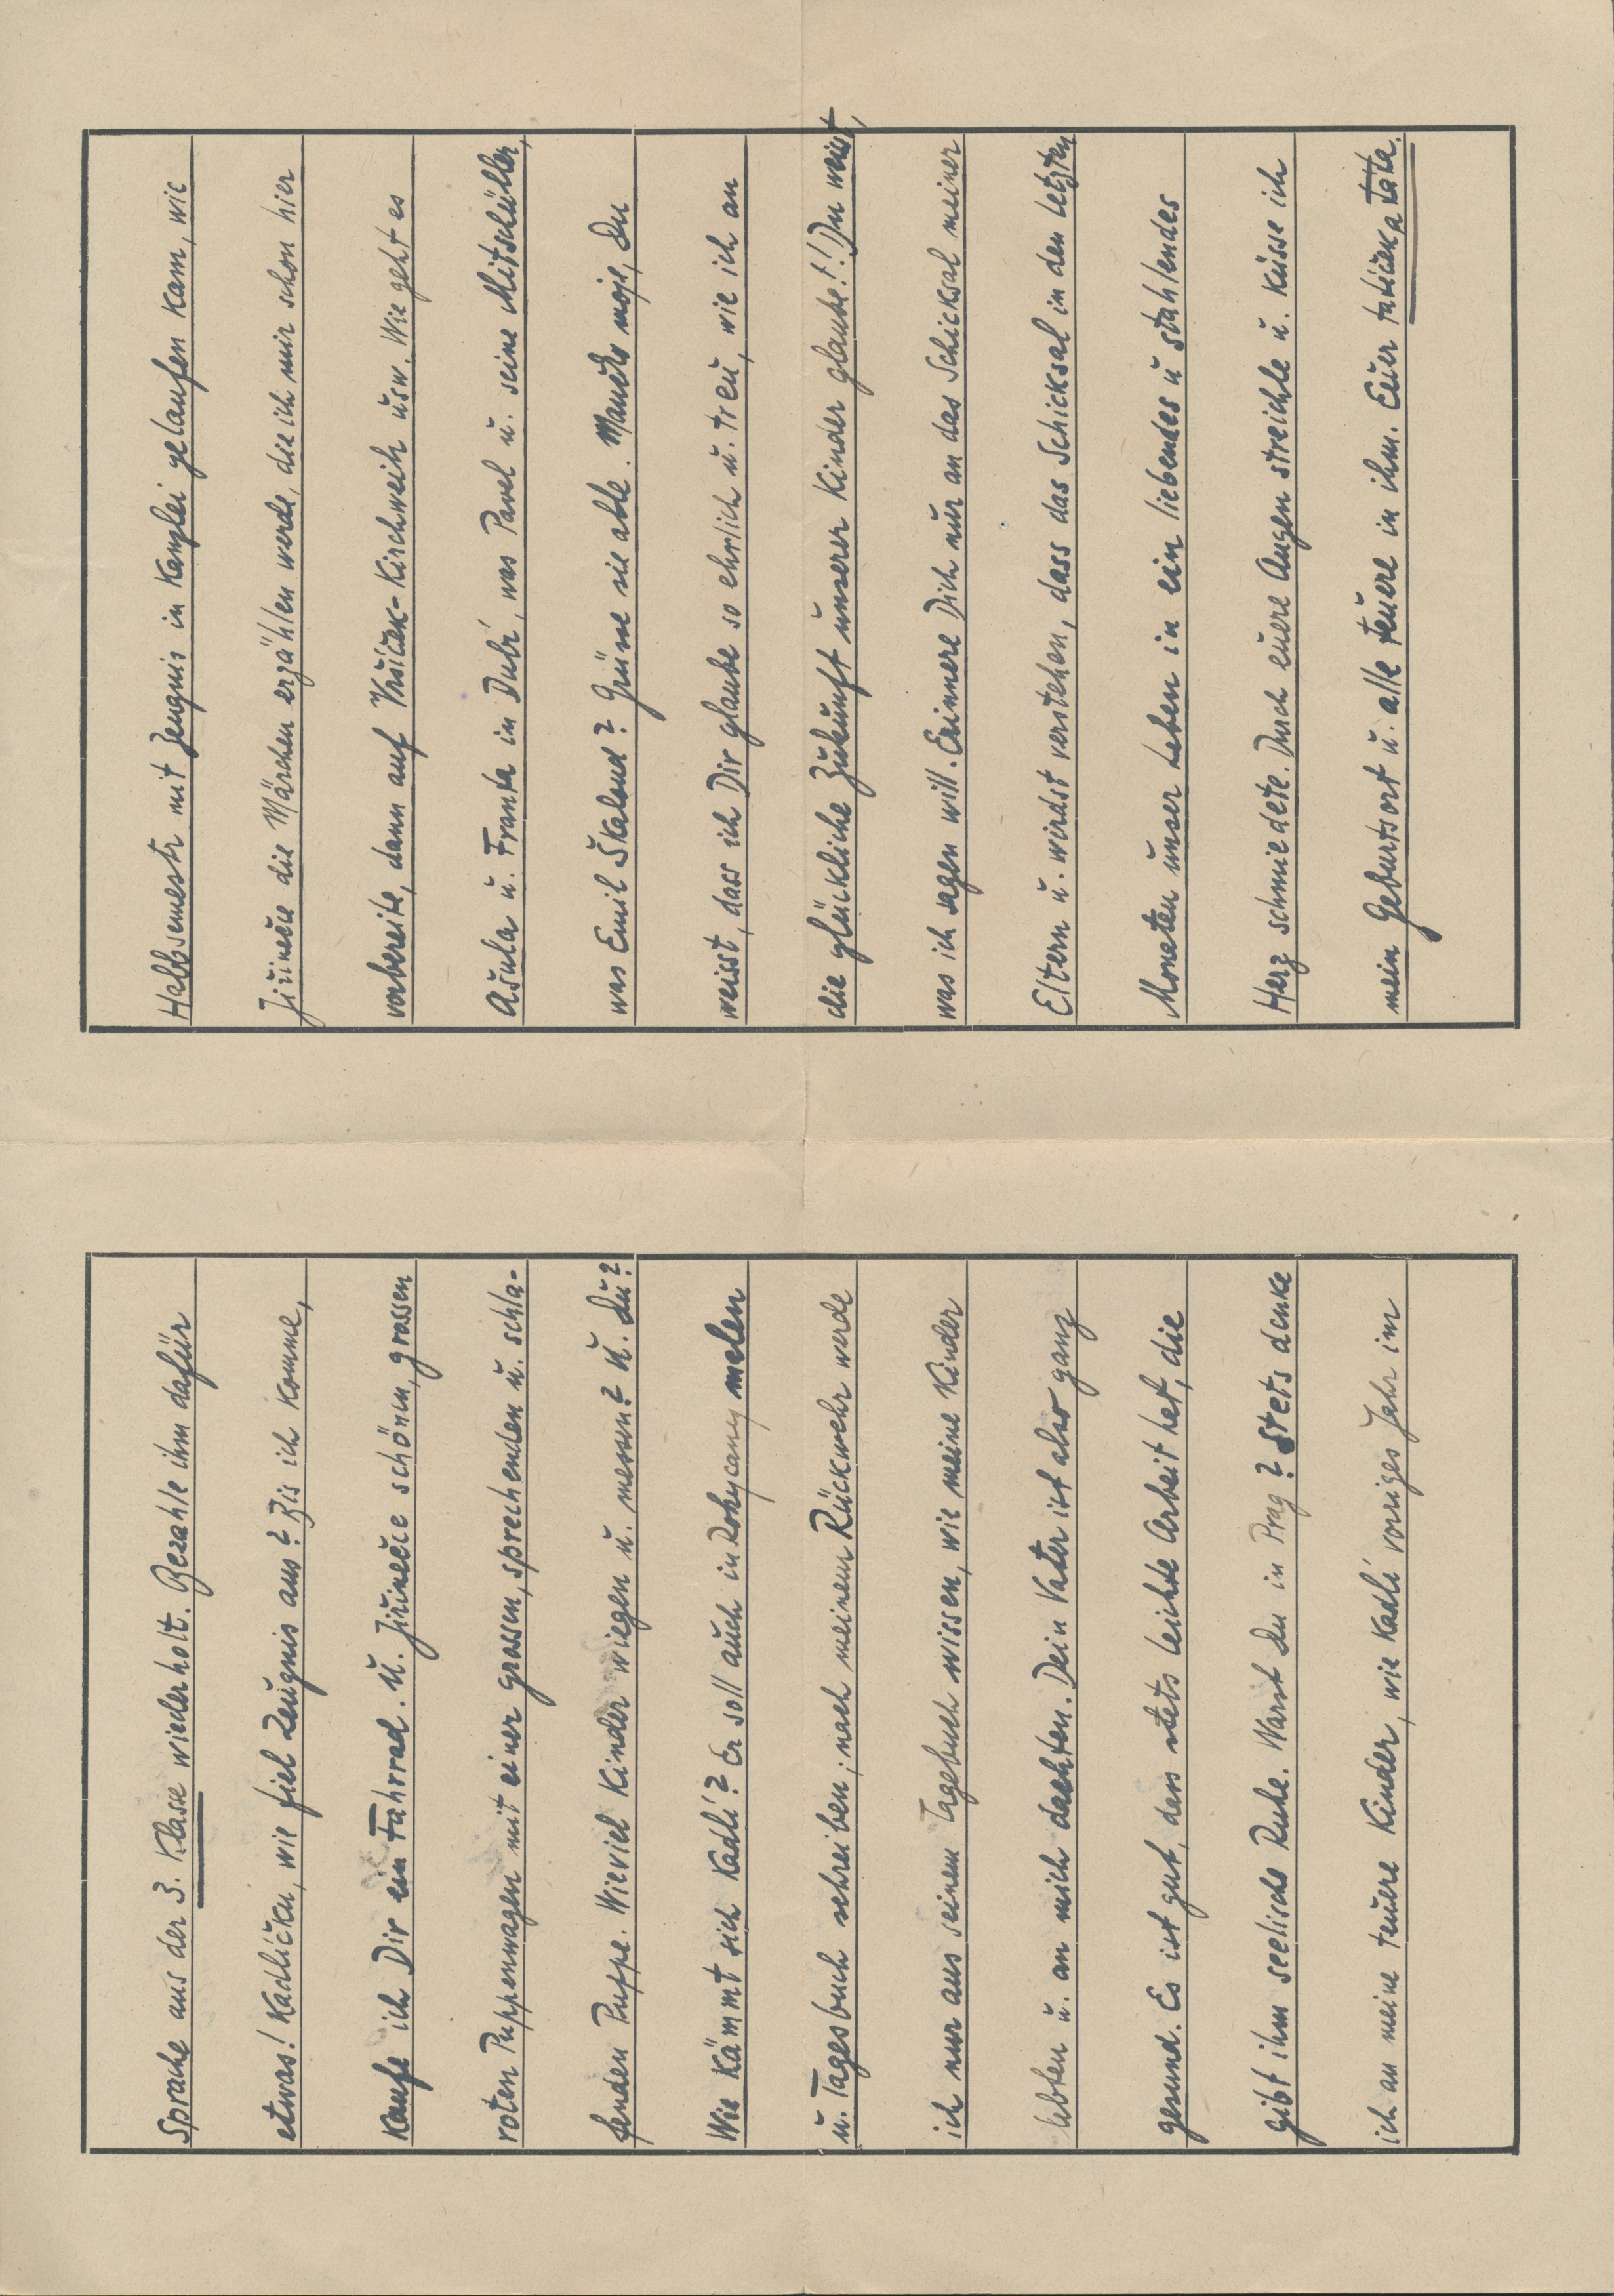 Sprache aus der 3. Klasse wiederholt. Bezahle ihm dafür
etwas! Kadlíčku, wie fiel Zeugnis aus? Bis ich komme,
kaufe ich Dir ein Fahrrad. u. Jiřinečce schönen, grossen
roten Puppenwagen mit einer grossen, sprechenden u. schla-
fenden Puppe. Wieviel Kinder wiegen u. messen? u. Du?
Wie kämmt sich Kadlí? Er soll auch in Rokycany melen
u. Tagesbuch schreiben; nach meinem Rückwehr werde
ich nur aus seinem Tagebuch wissen, wie meine Kinder
lebten u. an mich dachten. Dein Vater ist also ganz
gesund. Es ist gut, dass stets leichte Arbeit hat, die
gibt ihm seelische Ruhe. Warst Du in Prag? Stets denke
ich an meine teuere Kinder, wie Kadlí voriges Jahr im
Halbsemestr mit Zeugnis in Kanzlei gelaufen kam, wie
Jiřinečce die Märchen erzählen werde, die ich mir schon hier
vorbereite, dann auf Vršíček-Kirchweih usw. Wie geht es
Ašula u. Franta in Dubí, was Pavel u. seine Mitschüller,
was Emil Škaloud? Grüsse sie alle. Maničko moje, Du
weisst, dass ich Dir glaube so ehrlich u. treu, wie ich an
die glückliche Zukunft unserer Kinder glaube!! Du weist,
was ich sagen will. Erinnere Dich nur an das Schicksal meiner
Eltern u. wirdst verstehen, dass das Schicksal in den letzten
Monaten unser Leben in ein liebendes u stahlendes
Herz schmiedete. Durch euere Augen streichle u. küsse ich
mein Geburtsort u. alle teuere in ihm. Euer tatíček a táta.